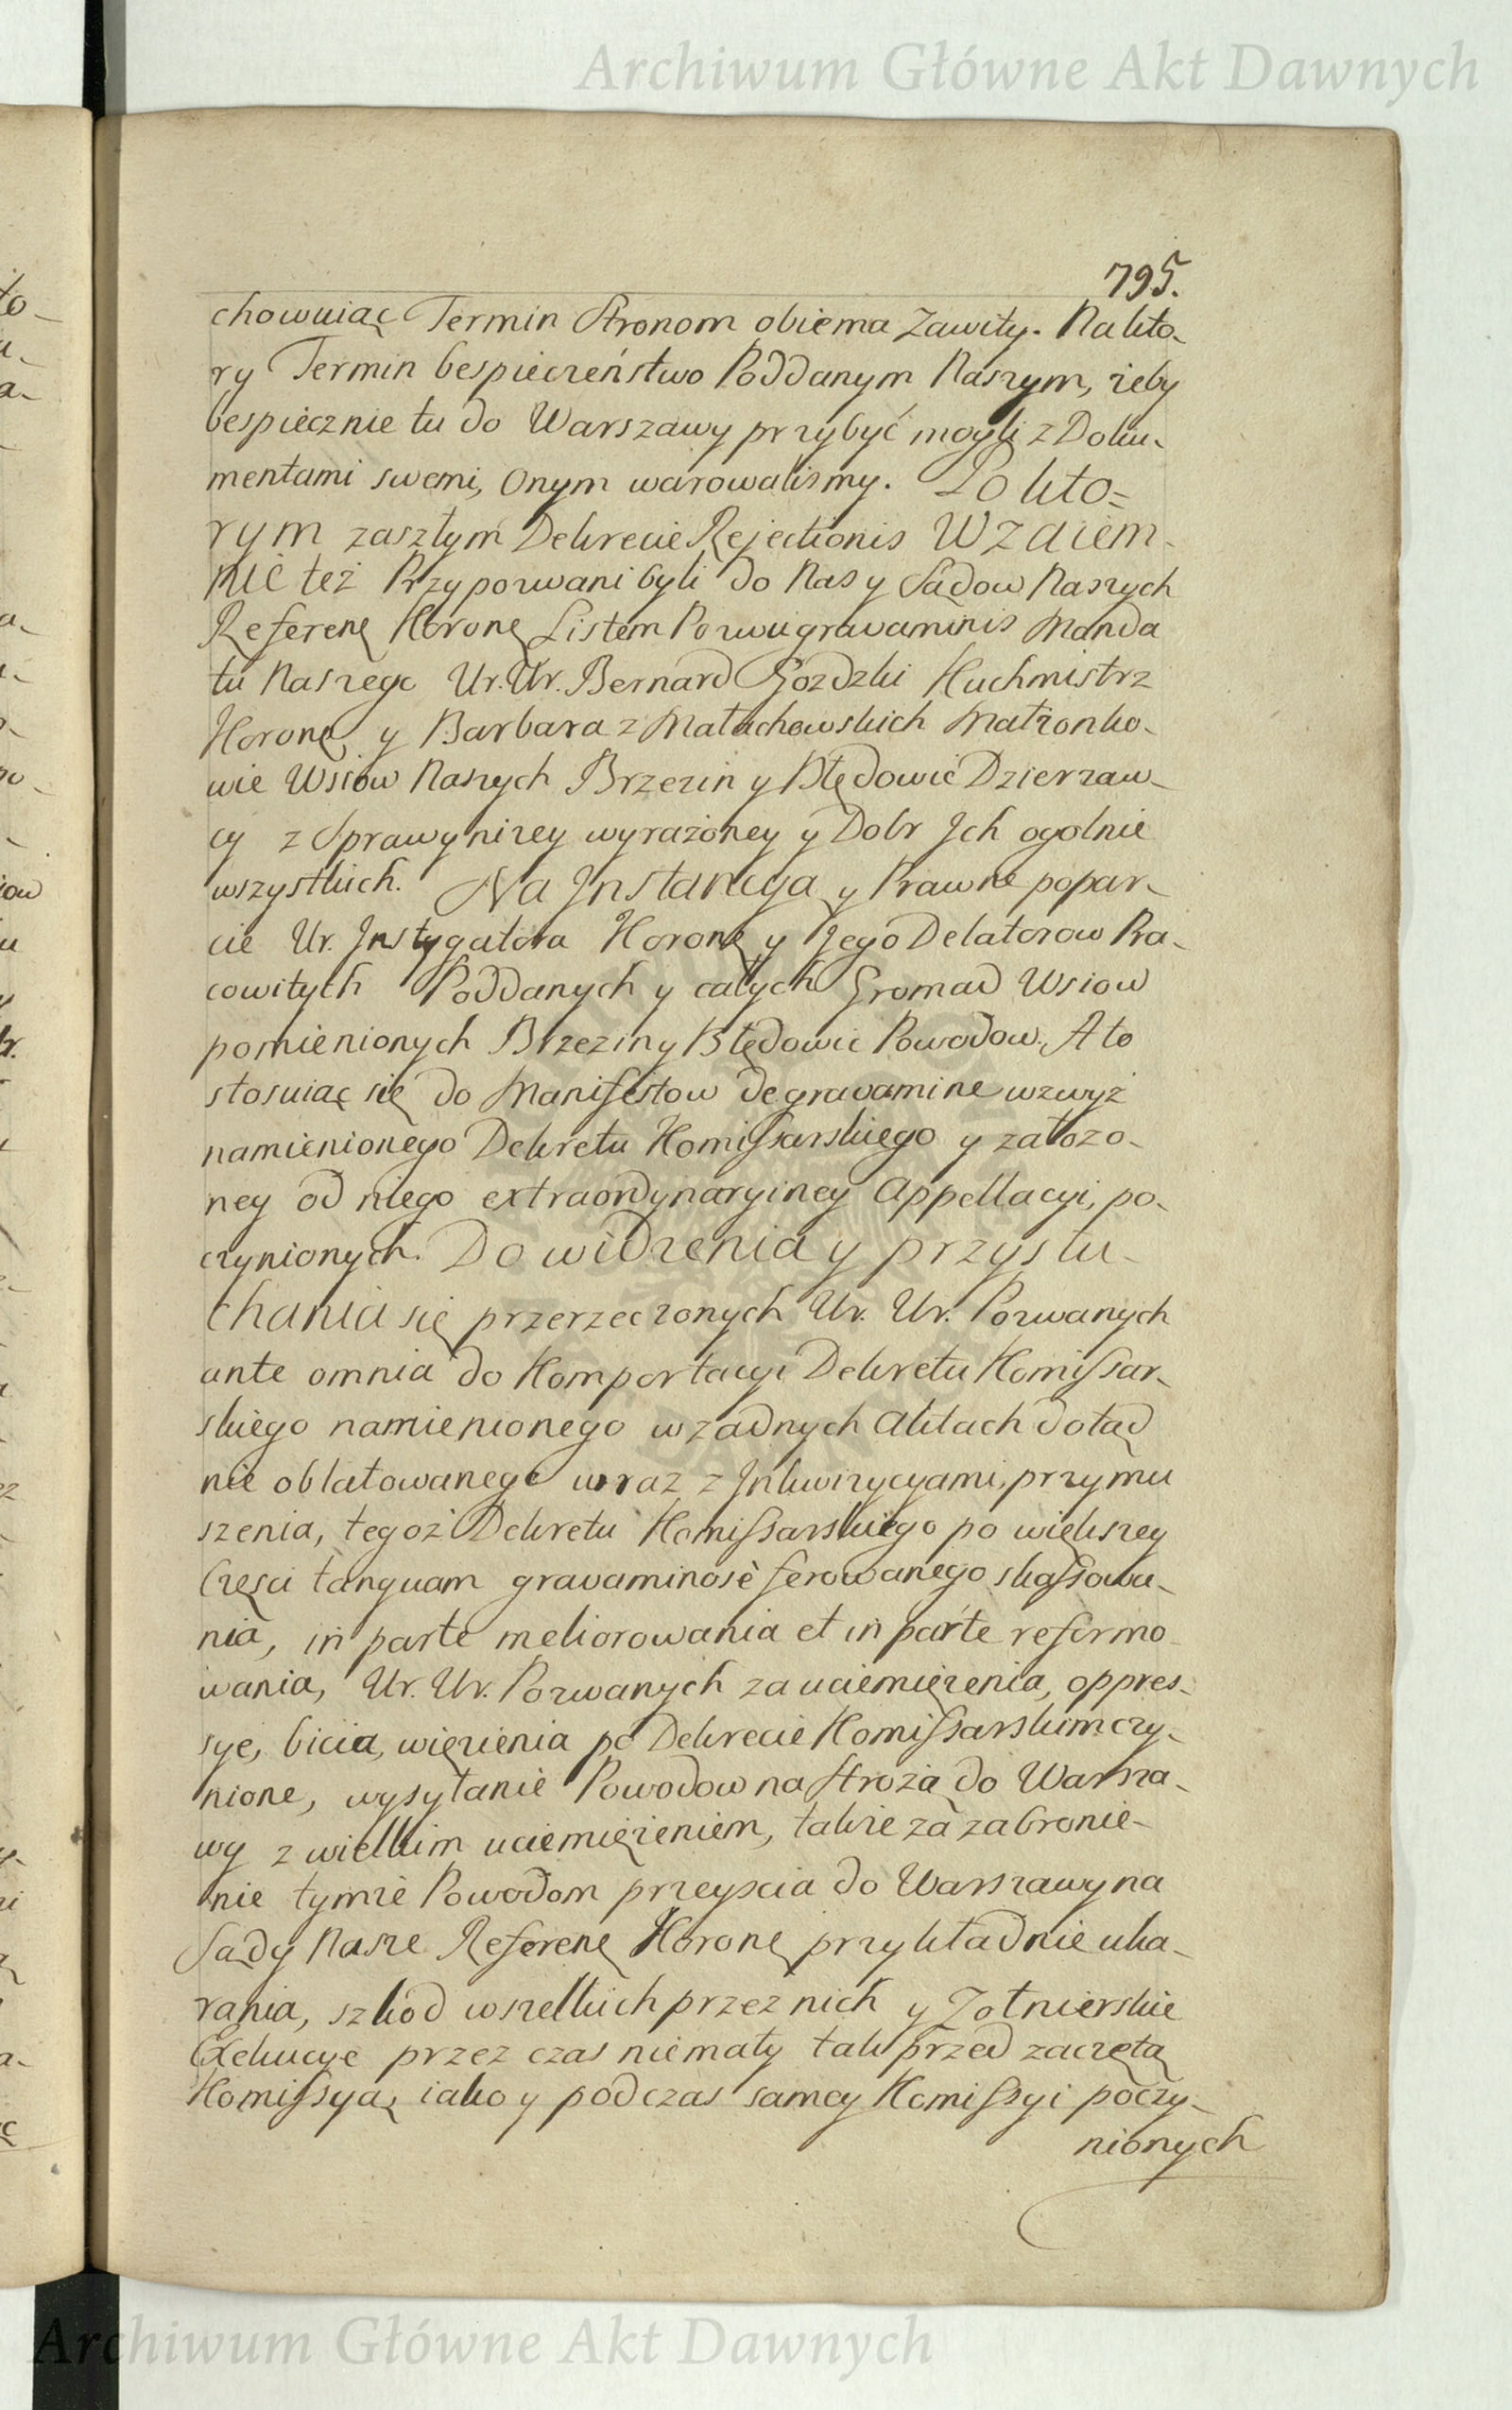 Archiwum Główne Akt Dawnych
795.
chowuiąc Termin Stronom obiema Zawity. Na kto-
ry Termin bespieczeństwo Poddanym Naszym, żeby
bespiecznie tu do Warszawy przybyć mogli z Doku-
mentami swemi, Onym warowalismy. Po kto=
rym zaszłym Dekrecie Rejectionis Wzaiem-
nie też Przypozwani byli do Nas y Sądow Naszych
Referenę Koronę Listem Pozwu gravaminis Manda
tu Naszego Ur. Ur. Bernard Gozdzki Kuchmistrz
Koronę y Barbara z Małachowskich Małżonko-
wie Wsiow Naszych Brzezin y Błędowic Dzierzaw-
cy z Sprawy niżey wyrażoney y Dobr Jch ogolnie
wszystkich. Na Jnstancyą y Prawne popar-
cie Ur. Jnstygatora Koronę y Jego Delatorow Pra-
cowitych Poddanych y całych Gromad Wsiow
pomienionych Brzezin y Błędowic Powodow. A to
stosuiąc się do Manifestow de gravamine wzwyż
namienionego Dekretu Komissarskiego y załozo-
ney od niego extraordynaryiney Appellacyi, po-
czynionych. Do widzenia y przysłu-
chania się przerzeczonych Ur. Ur. Pozwanych
ante omnia do Komportacyi Dekretu Komissar-
skiego namienionego w zadnych Aktach dotąd
nie oblatowanego wraz z Jnkwizycyami, przymu
szenia, tegoż Dekretu Komissarskiego po większey
Części tanquam gravaminosè ferowanego skassowa-
nia, in parte meliorowania et in parte reformo-
wania, Ur. Ur. Pozwanych za uciemiężenia, oppres-
sye, bicia, więzienia po Dekrecie Komissarskim czy-
nione, wysyłanie Powodow na Strożą do Warsza-
wy z wielkim uciemiężeniem, także za zabronie-
nie tymże Powodom przeyscia do Warszawy na
Sądy Nasze Referenę Koronę przykładnie uka-
rania, szkod wszelkich przez nich y Zołnierskie
Exekucye przez czas niemały tak przed zaczętą
Komissyą, iako y podczas samey Komissyi poczy-
nionych
Archiwum Główne Akt Dawnych